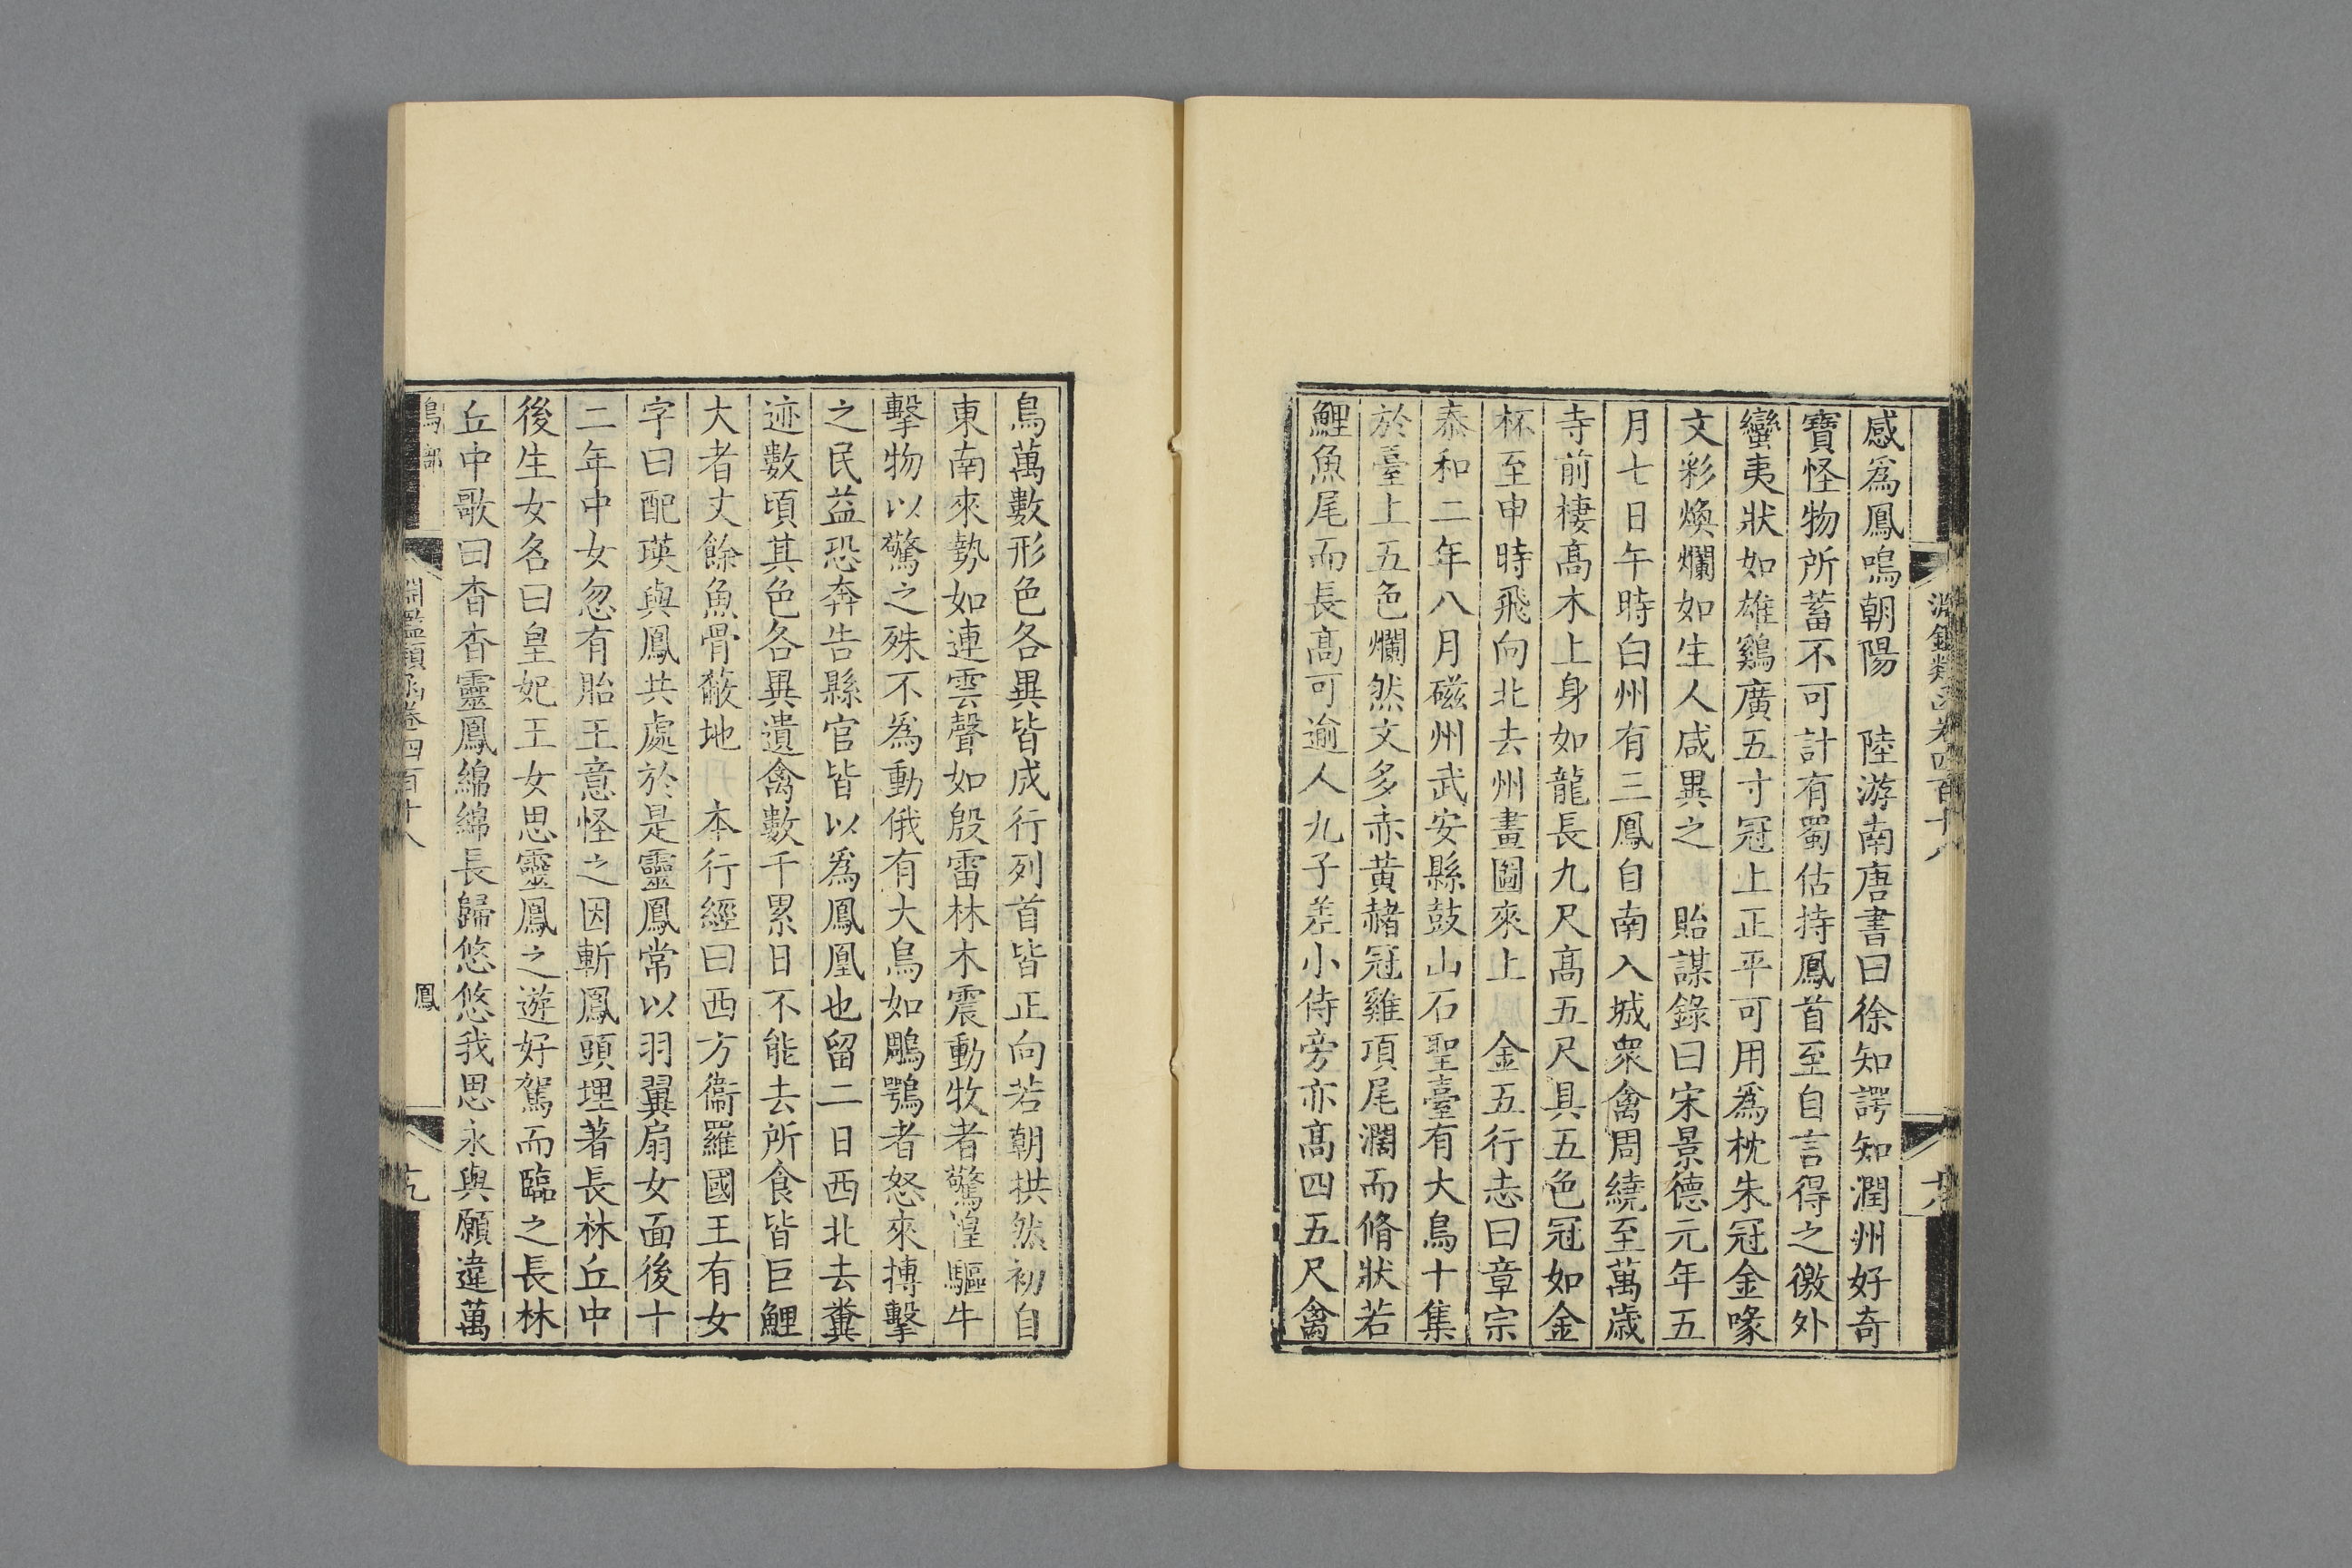 感爲鳳鳴朝陽　陸游南唐書曰徐知諤知潤州好奇
寶怪物所蓄不可計有蜀估持鳳首至自言得之徼外
蠻夷狀如雄鷄廣五寸冠上正平可用爲枕朱冠金喙
文彩煥爛如生人咸異之　貽謀錄曰宋景德元年五
月七日午時白州有三鳳自南入城衆禽周繞至萬歲
寺前棲高木上身如龍長九尺高五尺具五色冠如金
杯至申時飛向北去州畫圖來上　金五行志曰章宗
泰和二年八月磁州武安縣鼓山石聖臺有大鳥十集
於臺上五色爛然文多赤黃赭冠雞項尾濶而脩狀若
鯉魚尾而長高可逾人九子差小侍旁亦高四五尺禽
鳥萬數形色各異皆成行列首皆正向若朝拱然初自
東南來勢如連雲聲如殷雷林木震動牧者驚惶驅牛
擊物以驚之殊不爲動俄有大鳥如鵰鶚者怒來搏擊
之民益恐奔告縣官皆以爲鳳凰也留二日西北去糞
迹數頃其色各異遺禽數千累日不能去所食皆巨鯉
大者丈餘魚骨蔽地　本行經曰西方衞羅國王有女
字曰配瑛與鳳共處於是靈鳳常以羽翼扇女面後十
二年中女忽有胎王意怪之因斬鳳頭埋著長林丘中
後生女名曰皇妃王女思靈鳳之遊好駕而臨之長林
丘中歌曰杳杳靈鳳綿綿長歸悠悠我思永與願違萬
鳥部
淵鑑類函卷四百十八
鳳